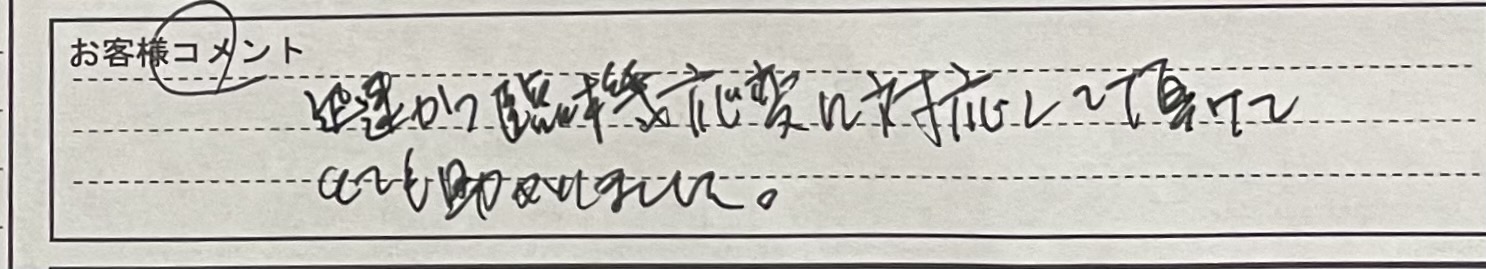 お客様コメント
迅速かつ臨機応変に対応して頂けて
とても助かりました。